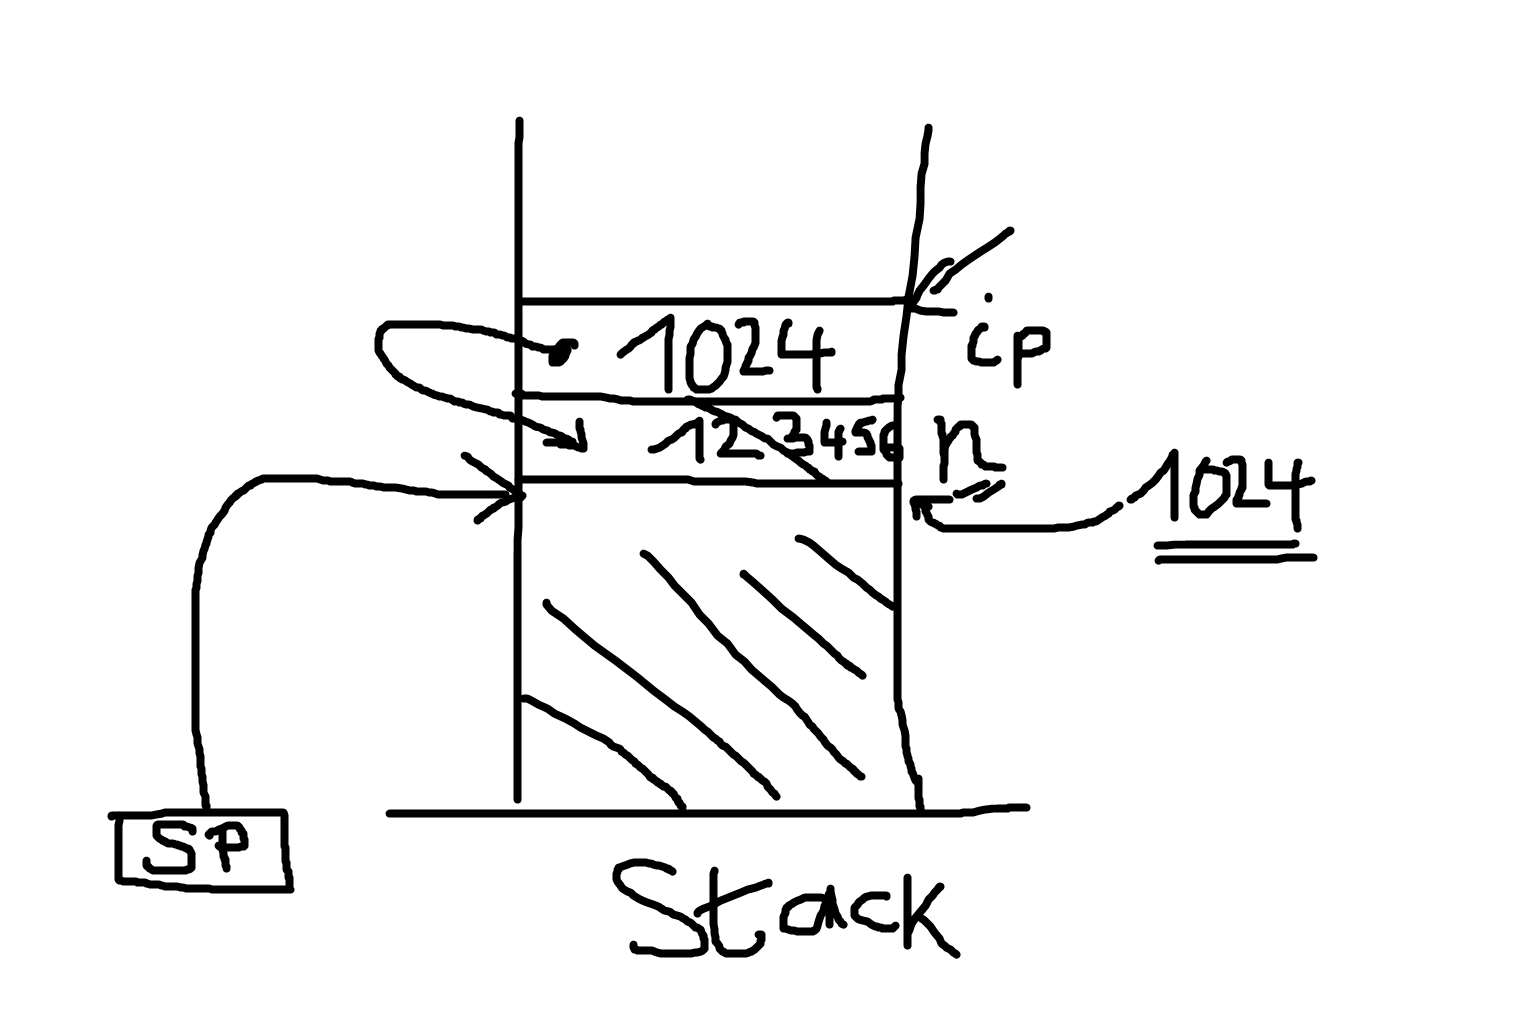 1024
ip
123456
n
1024
SP
Stack